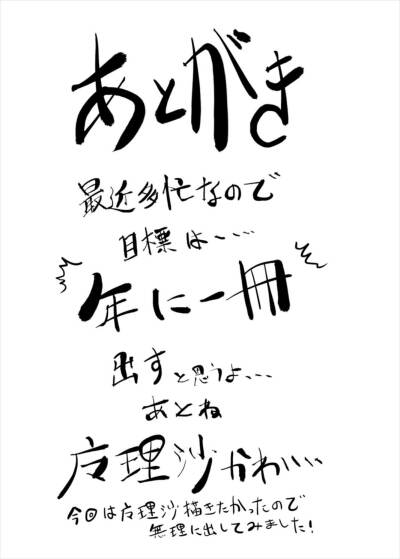 あとがき
最近多忙なので
目標は、、、
年に一冊
出すと思うよ、、、
あとね
广理沙かわいい
今回は广理沙描きたかったので
無理に出してみました!